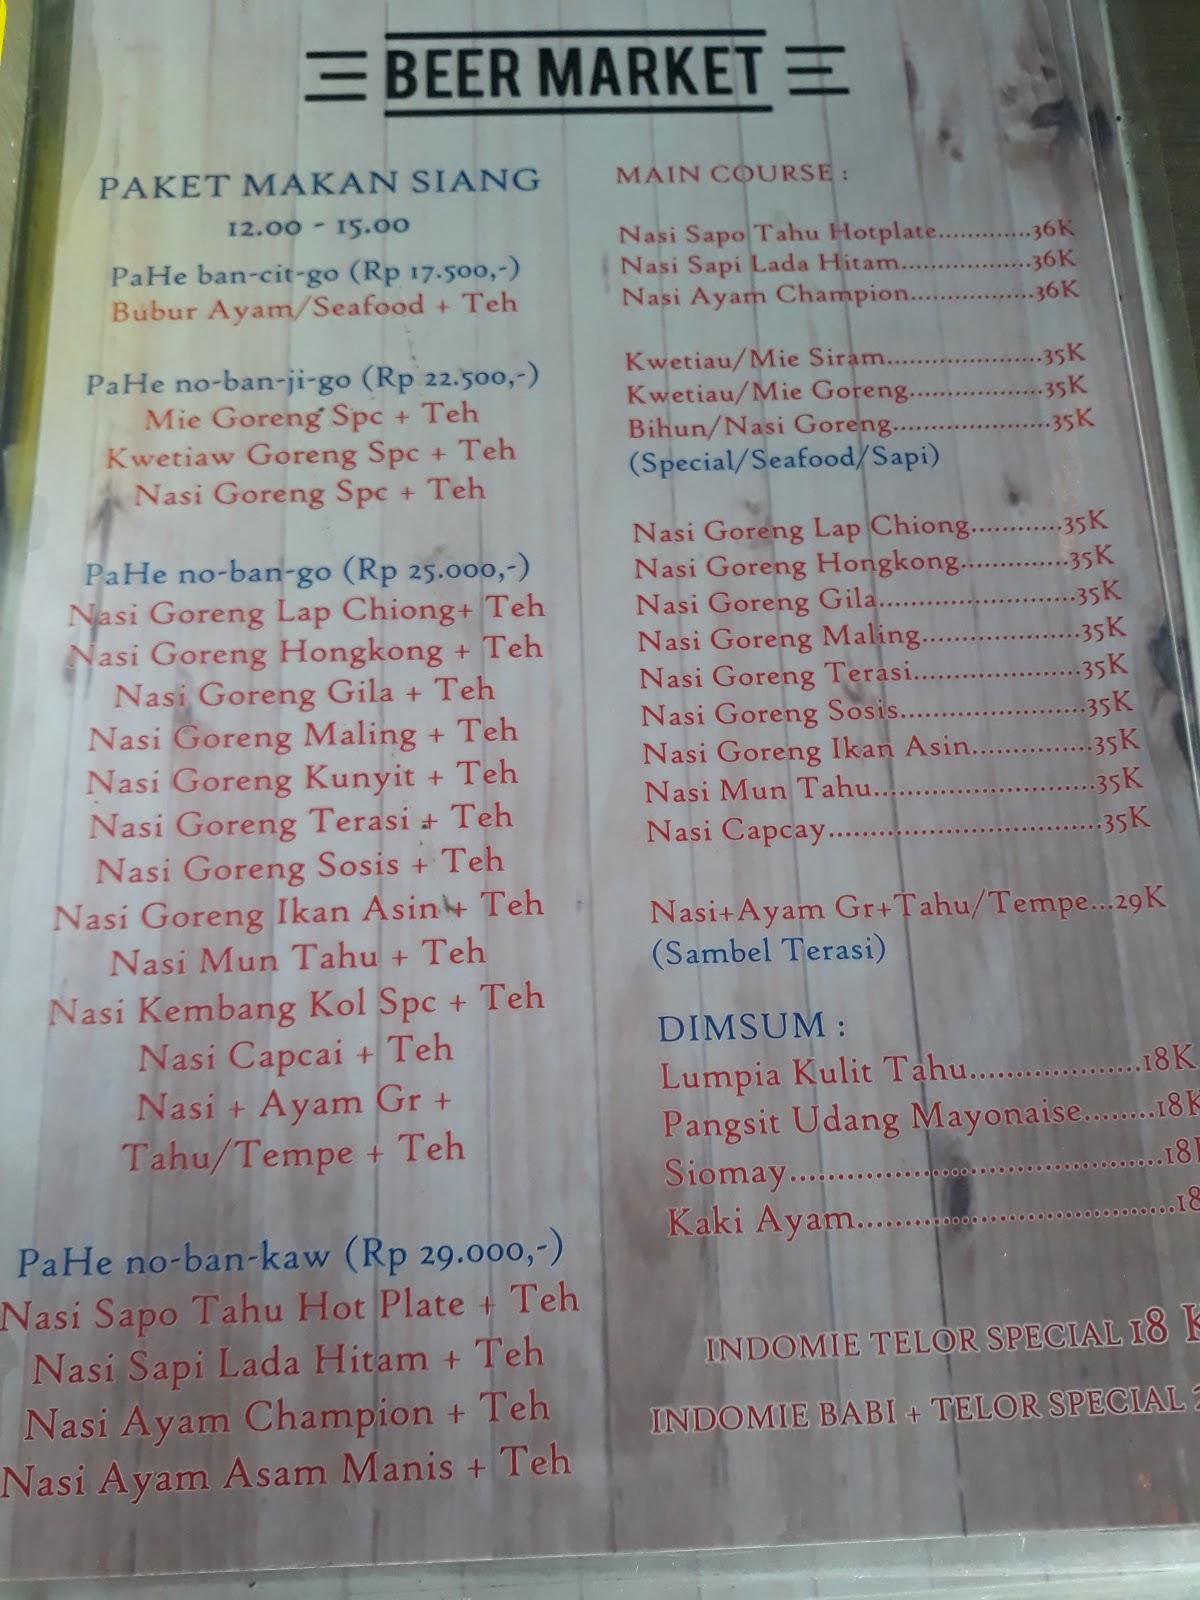 BEER MARKET
PAKET MAKAN SIANG
12.00 - 15.00
PaHe ban-cit-go (Rp 17.500,-)
Bubur Ayam/Seafood + Teh
PaHe no-ban-ji-go (Rp 22.500,-)
Mie Goreng Spc + Teh
Kwetiaw Goreng Spc + Teh
Nasi Goreng Spc + Teh
PaHe no-ban-go (Rp 25.000,-)
Nasi Goreng Lap Chiong+ Teh
Nasi Goreng Hongkong + Teh
Nasi Goreng Gila + Teh
Nasi Goreng Maling + Teh
Nasi Goreng Kunyit + Teh
Nasi Goreng Terasi + Teh
Nasi Goreng Sosis + Teh
Nasi Goreng Ikan Asin + Teh
Nasi Mun Tahu + Teh
Nasi Kembang Kol Spc + Teh
Nasi Capcai + Teh
Nasi + Ayam Gr +
Tahu/Tempe + Teh
PaHe no-ban-kaw (Rp 29.000,-)
Nasi Sapo Tahu Hot Plate + Teh
Nasi Sapi Lada Hitam + Teh
Nasi Ayam Champion + Teh
Nasi Ayam Asam Manis + Teh
MAIN COURSE :
Nasi Sapo Tahu Hotplate.............36K
Nasi Sapi Lada Hitam..................36K
Nasi Ayam Champion.................36K
Kwetiau/Mie Siram......................35K
Kwetiau/Mie Goreng...................35K
Bihun/Nasi Goreng......................35K
(Special/Seafood/Sapi)
Nasi Goreng Lap Chiong............35K
Nasi Goreng Hongkong..............35K
Nasi Goreng Gila.........................35K
Nasi Goreng Maling....................35K
Nasi Goreng Terasi.....................35K
Nasi Goreng Sosis.......................35K
Nasi Goreng Ikan Asin...............35K
Nasi Mun Tahu...........................35K
Nasi Capcay.................................35K
Nasi+Ayam Gr+Tahu/Tempe...29K
(Sambel Terasi)
DIMSUM :
Lumpia Kulit Tahu...................18K
Pangsit Udang Mayonaise........18K
Siomay..........................................18
Kaki Ayam...................................18
INDOMIE TELOR SPECIAL 18 K
INDOMIE BABI + TELOR SPECIAL